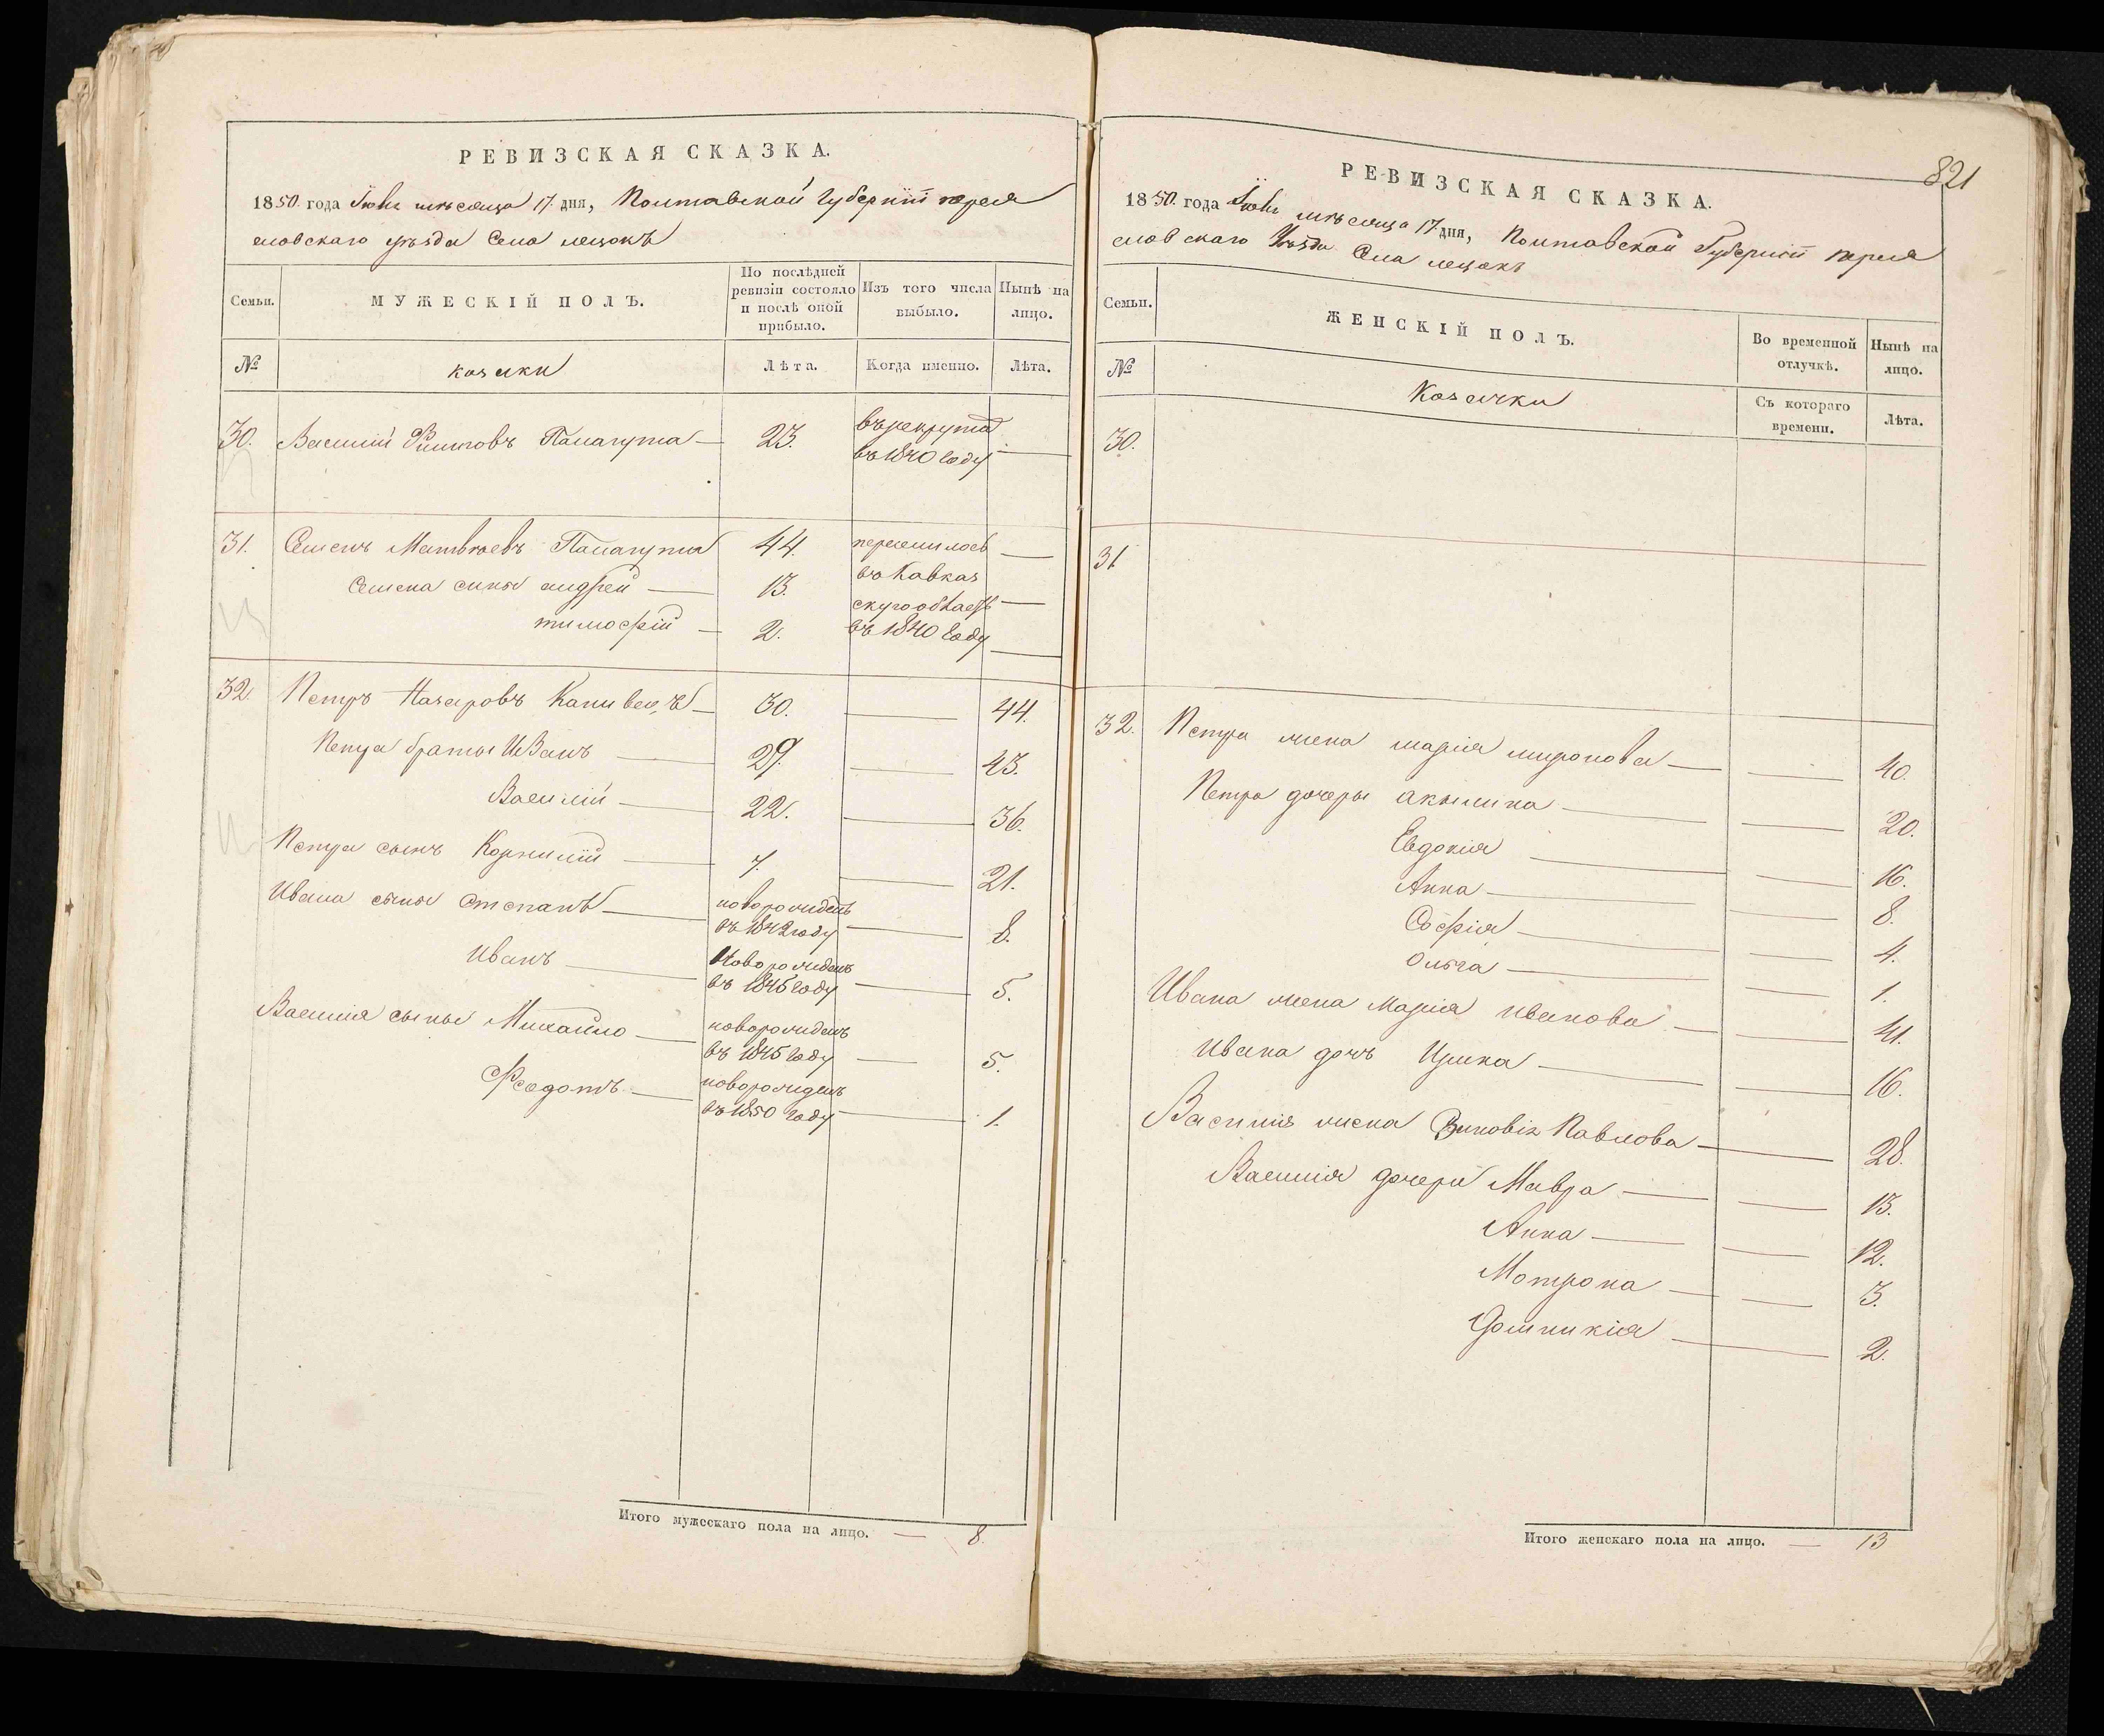 РЕВИЗСКАЯ СКАЗКА.
1850 года Іюнь мѣсяца 17. дня, Полтавской Губерніи перея
словскаго уѣзда Села лецокъ
Семьи. МУЖЕСКІЙ ПОЛЪ. По послѣдней ревизіи состояло и послѣ оной прибыло. Изъ того числа выбыло. Нынѣ на лицо.
№ козаки Лѣта. Когда именно. Лѣта.
30. Василій Филиповъ Палагута 23. въ рекруты
въ 1840 году
31. Семенъ Матвѣевъ Палагута 44. переселилось
Семена сыны андрей 13. въ Кавказ
скую область
тимофій 2. въ 1840 году
32. Петръ Назаровъ Канивецъ 30. 44.
Петра браты Иванъ 29. 43.
Василій 22. 36.
Петра сынъ Корнилій 7. 21.
Ивана сыны Степанъ новорожденъ
въ 1842 году 8.
Иванъ Новорожденъ
въ 1845 году 5.
Василія сыны Михайло новорожденъ
въ 1845 году 5.
Федотъ новорожденъ
въ 1850 году 1.
Итого мужескаго пола на лицо. 8.
821
РЕВИЗСКАЯ СКАЗКА.
1850. года Іюнь мѣсяца 17 дня, Полтавской Губерніи перея
словскаго Уѣзда Села лецокъ
Семьи. ЖЕНСКІЙ ПОЛЪ. Во временной отлучкѣ. Нынѣ на лицо.
№ Козачки Съ котораго времени. Лѣта.
30.
31
32. Петра жена марія миронова 40.
Петра дочеры акылина 20.
Евдокія 16.
Анна 8.
Софія 4.
Ольга 1.
Ивана жена Марія иванова 41.
Ивана дочъ Ирина 16.
Василія жена Зиновія Павлова 28.
Василія дочери Мавра 13.
Анна 12.
Мотрона 3.
Домникія 2.
Итого женскаго пола на лицо. 13